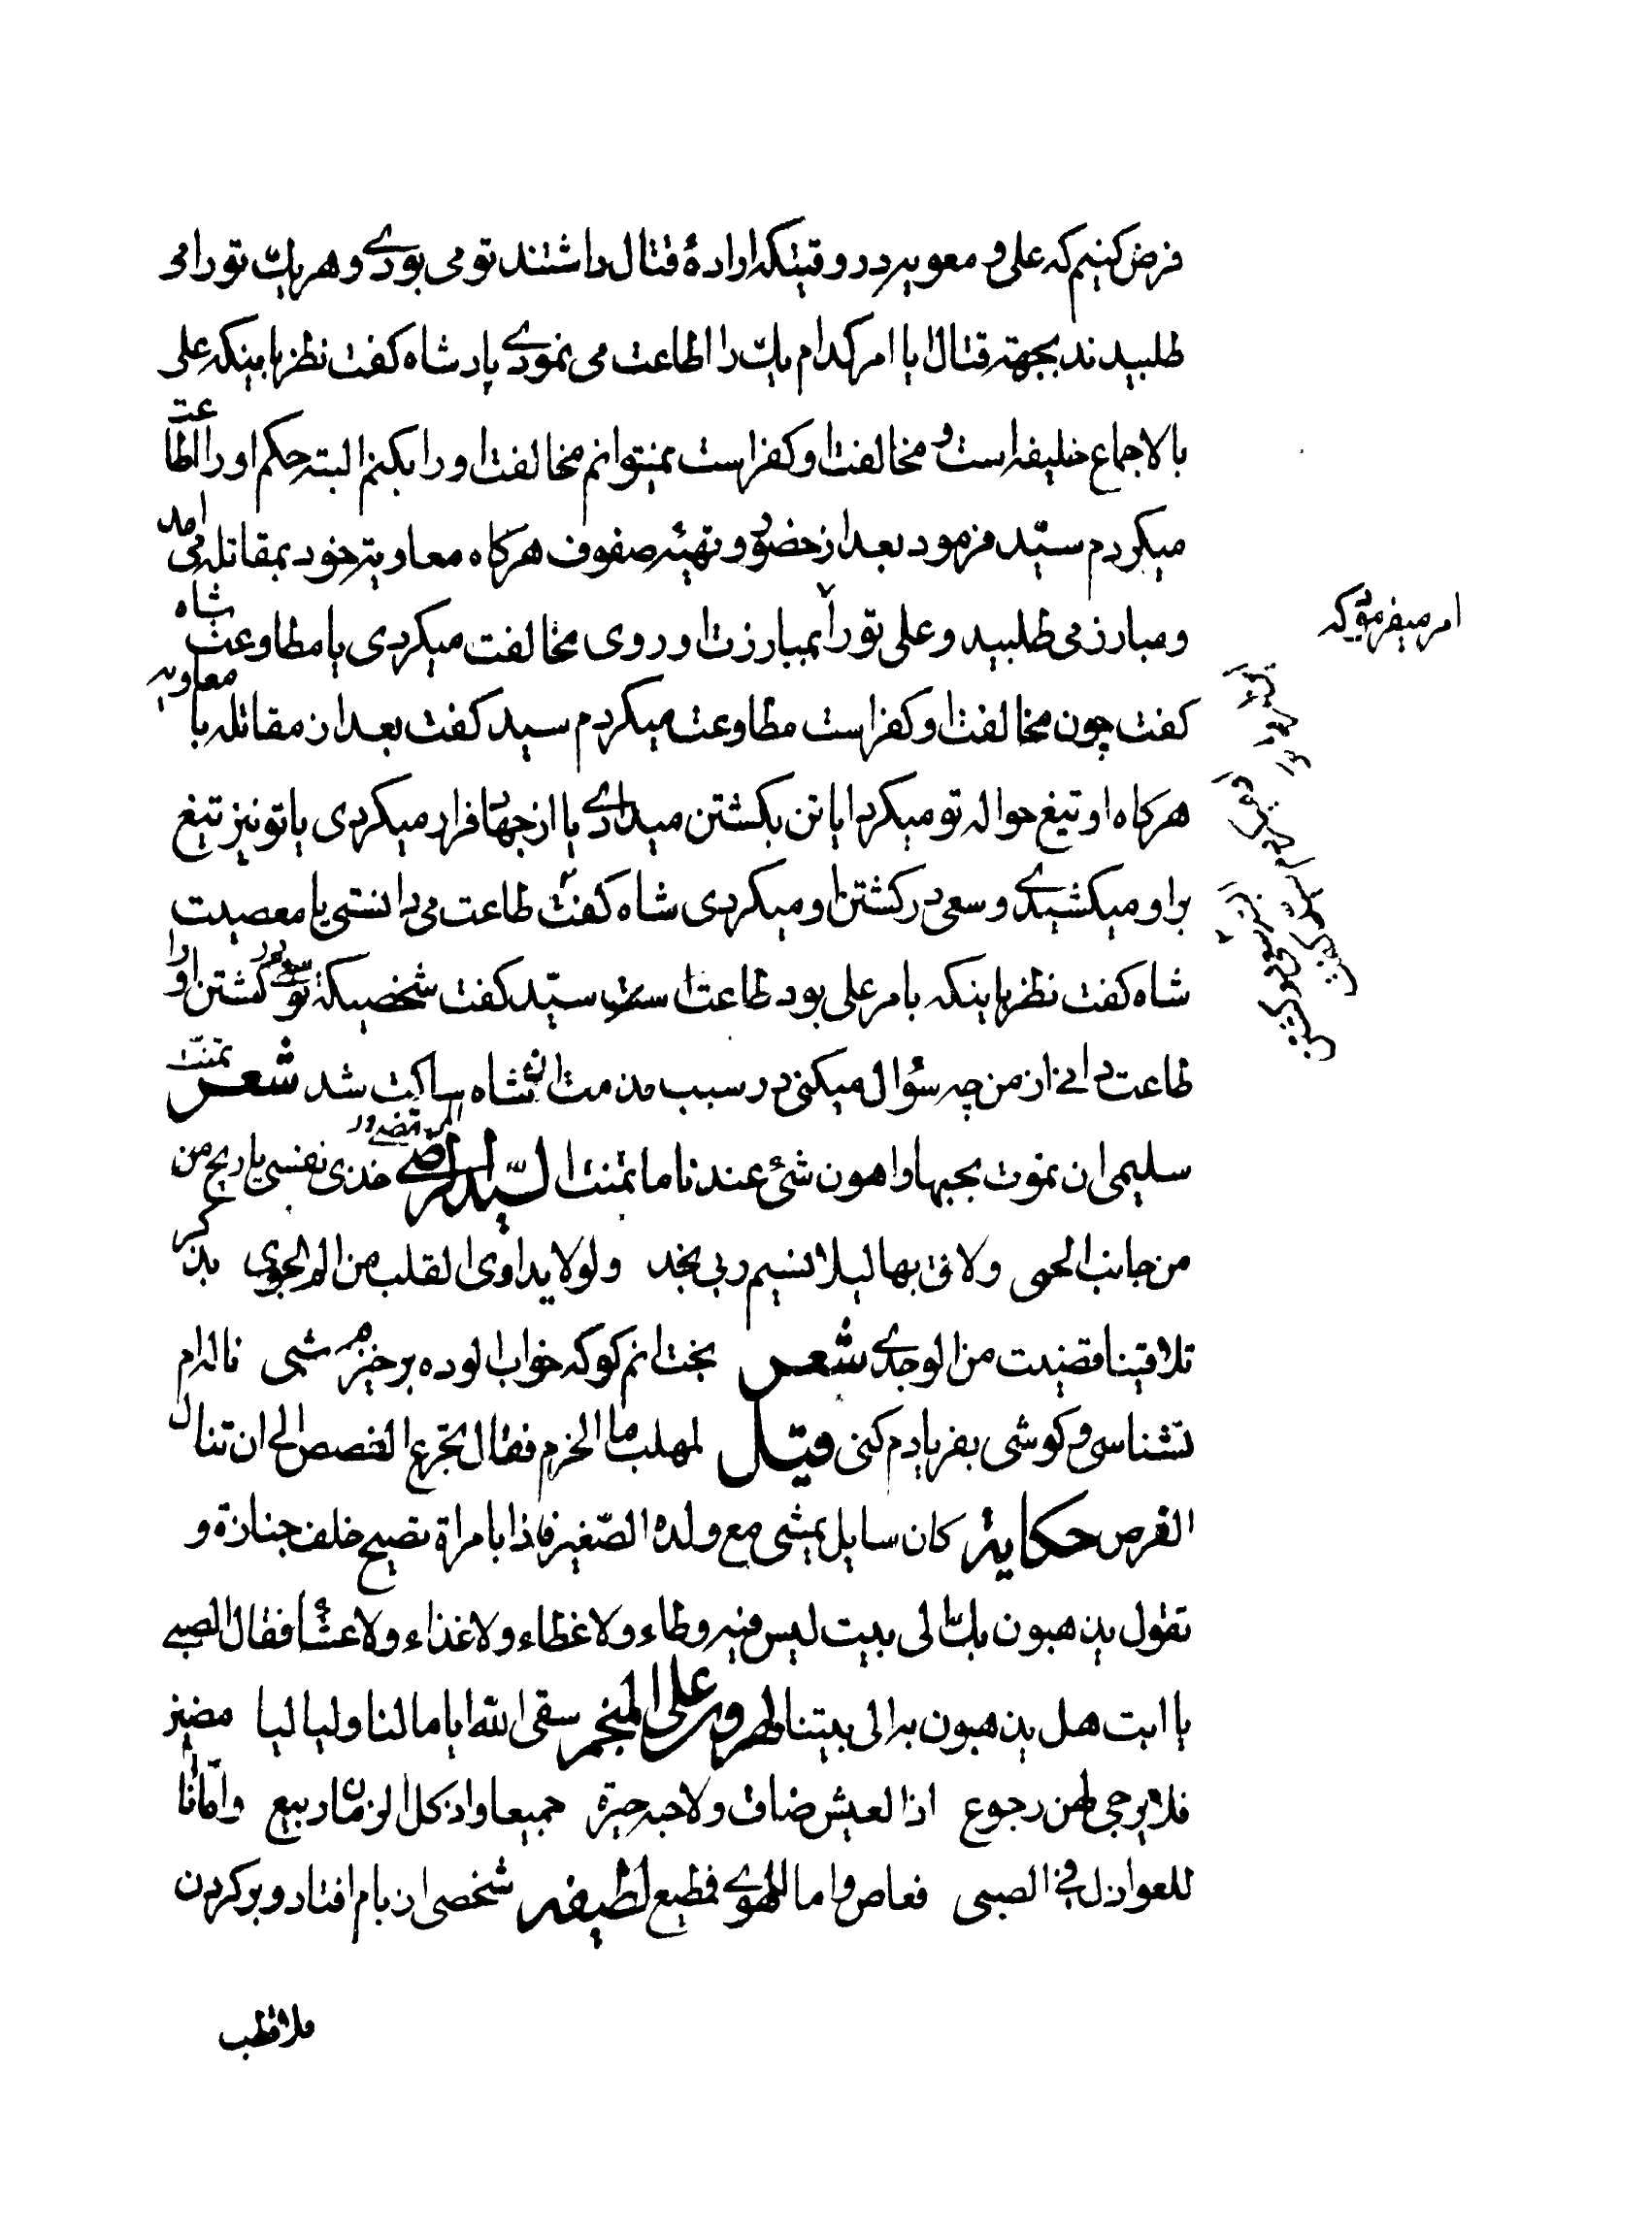 فرض کنیم که علی و معویه در وقتیکه اراده قتال داشتند تو می بودی و هر یک تو را می
طلبیدند بجهة قتال ایا امر کدام یک را اطاعت می نمودی پادشاه کفت نظر باینکه علی
بالاجماع خلیفه است و مخالفت او کفر است نمیتوانم مخالفت او را بکنم البته حکم او را اطاعت
میکردم سید فرمود بعد از حضور و تهیئه صفوف هرکاه معاویة خود بمقاتله می امد
امر میفرمود که
و مبارز می طلبید و علی تو را بمبارزت او روی مخالفت میکردی یا مطاوعت شاه
کفت چون مخالفت او کفر است مطاوعت میکردم سید کفت بعد از مقاتله با معاویه
هرکاه او تیغ حواله تو میکرد ایا تن بکشتن میدادی یا از جهاد فرار میکردی یا تو نیز تیغ
بر او میکشیدی و سعی در کشتن او میکردی شاه کفت طاعت می دانستی یا معصیت
شاه کفت نظر باینکه بامر علی بود طاعت است سید کفت شخصیکه تو سعی در کشتن او را
طاعت دانی از من چه سؤال میکنی در سبب مذمت ان شاه ساکت شد شعر تمنت
سلیمی ان نموت بحبها و اهون شئ عندنا ما تمنت السید المرتضی خذی نفسی یا ریح من
من جانب الحمی ولاقی بها لیلا نسیم ربی نجد ولولا یداوی القلب من الم الجوی بذکر
تلاقینا قضیت من الوجدی شعر بخت انم کو که خواب الوده برخیزم شمی نالدام
نشناسی و کوشی بفریادم کنی قیل لمهلب ما الحزم فقال تجرع الغصص الی ان تنال
الفرص حکایة کان سایل یمشی مع ولده الصغیر فاذا بامراة تصیح خلف جنازة و
تقول یذهبون بک الی بیت لیس فیه وطاء ولا غطاء ولا غذاء ولا عشاء فقال الصبی
یا ابت هل یذهبون به الی بیتنا لهرون علی المنجم سقی الله ایاما لنا ولیالیا مضین
فلا یرجی لهن رجوع اذ العیش صاف والاحبه جیرة جمیعا واذ کل الزمان ربیع واما انا
للعواذل فی الصبی فعاص واما للهوی فطیع لطیفه شخصی از بام افتاد و بر کردن
ملا قطب